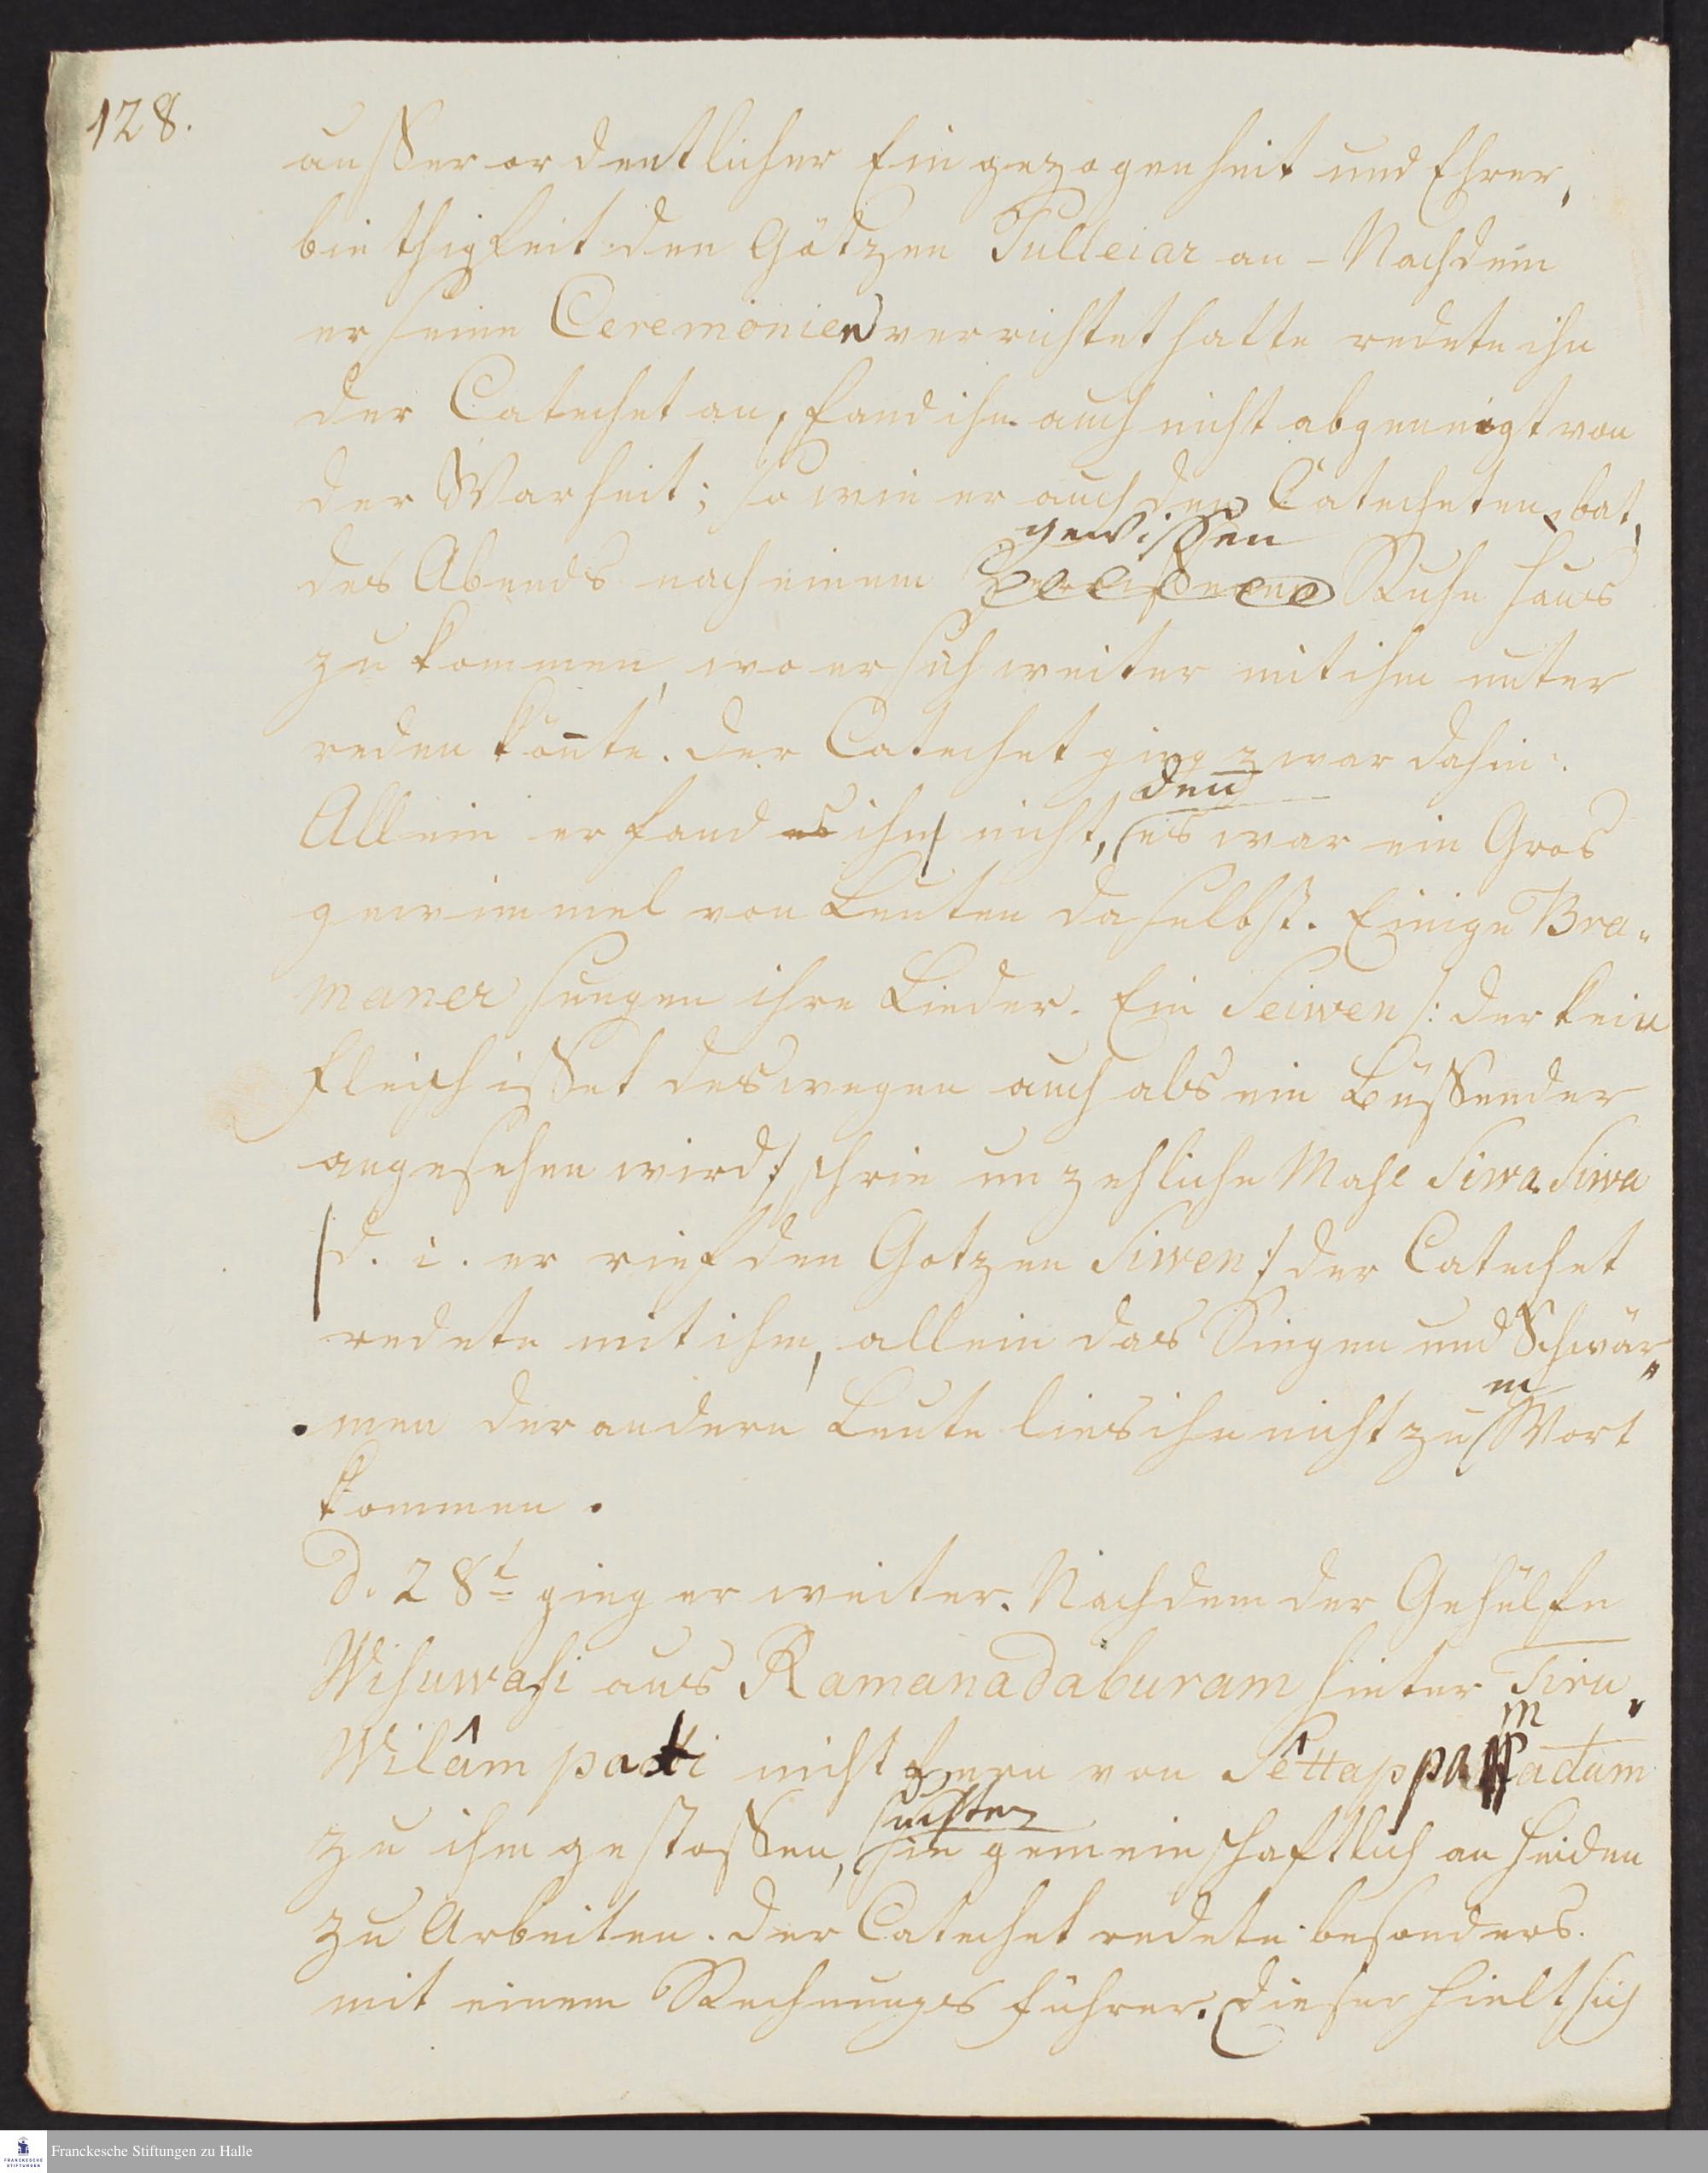 128.
ausserordentlicher Eingezogenheit und Ehrer,
biethigkeit den Götzen Pulleiar an – Nachdem
er seine Ceremonien verrichtet hatte redete ihn
der Catechet an, fand ihn auch nicht abgeneigt von
der Warheit; so wie er auch den Catecheten bat,
gewissen
des Abends nach einem Ruhe haus
zu kommen, wo er sich weiter mit ihm unter
reden kon̄te. der Catechet ging zwar dahin:
den̄
Allein er fand es ihn nicht, es war ein Gros
gewimmel von Leuten daselbst. Einige Bra„
maner sungen ihre Lieder. Ein Seiwen /: der kein
Fleisch isset deswegen auch als ein Büssender
angesehen wird :/ schrie unzehliche Mahl Siwa Siwa
/d. i. er rief den Gotzen Siwen :/ der Catechet
redete mit ihm, allein das Singen und Schwär„
m
men der andern Leute lies ihn nicht zu Wort
kommen.
D. 28t ging er weiter. Nachdem der Gehülfe
Wisuwasi aus Ramanadaburam hinter Tiru„
m
Wilâm patti nicht fern von Sêttap padam
suchten
zu ihm gestossen, sie gemeinschaftlich an Heiden
zu Arbeiten. der Catechet redete besonders
mit einem Rechnungs führer. Dieser hielt sich
Franckesche Stiftungen zu Halle
FRANCKESCHE
STIFTUNGEN